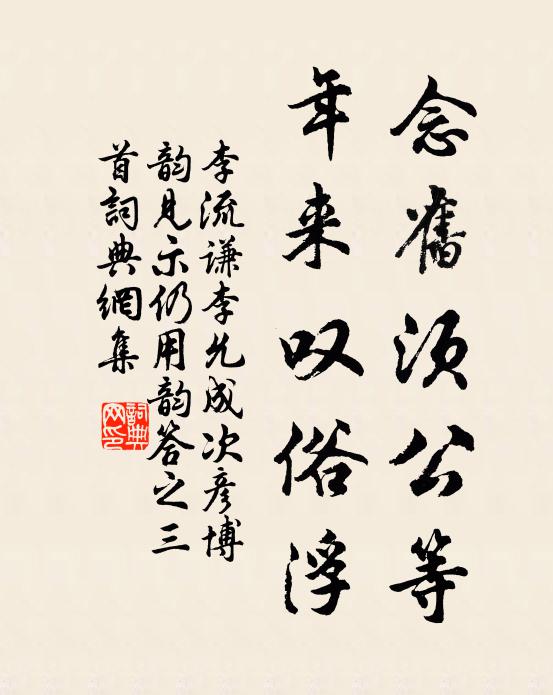 念舊须公等
年来叹俗浮
李流谦李允成次彦博
韵见示仍用韵答之三
首詞典網集
詞典
网印